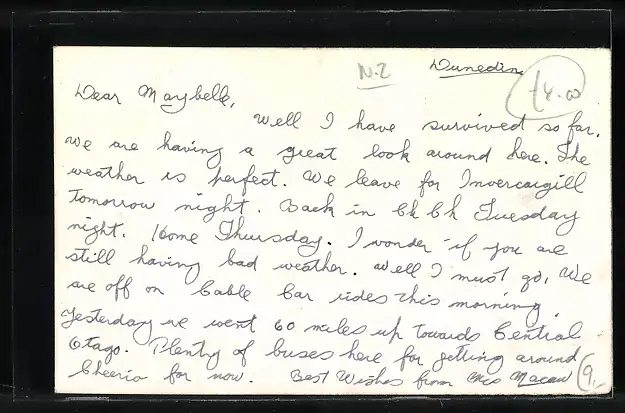 N.Z Dunedin.
Dear Maybelle, 
Well I have survived so far.
We are having a great look around here. The
weather is perfect. We leave for Invercargill
Tomorrow night. Back in Ch Ch Tuesday
night. Home Thursday. I wonder if you are
still having bad weather. Well I must go, We
are off on Cable Car rides this morning.
Yesterday we went 60 miles up towards Central
Otago. Plenty of buses here for getting around
Cheerio for now. Best Wishes from Macaw
9.